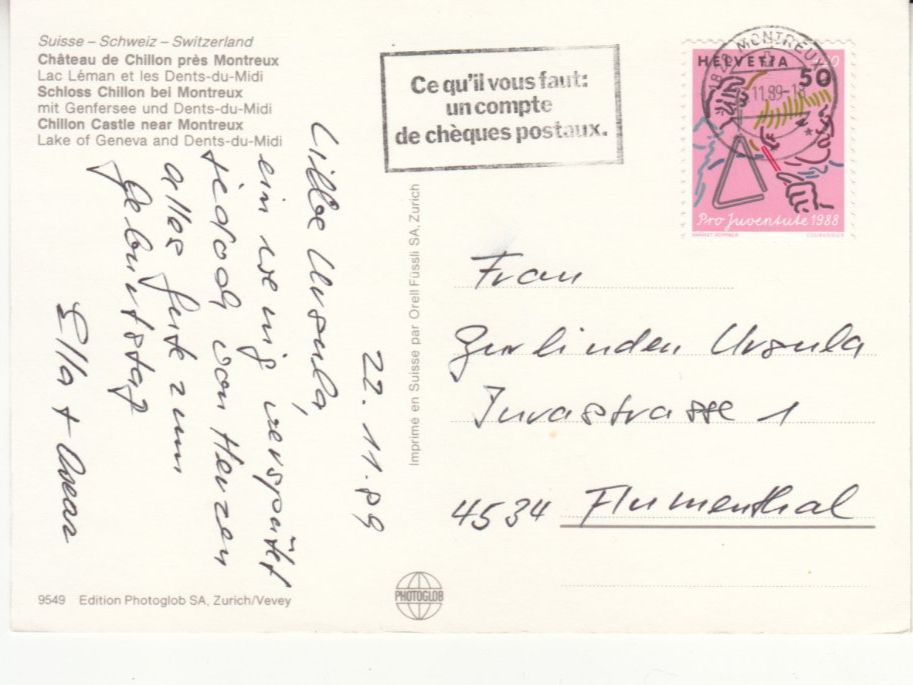 Suisse – Schweiz – Switzerland
Château de Chillon près Montreux
Lac Léman et les Dents-du-Midi
Schloss Chillon bei Montreux
mit Genfersee und Dents-du-Midi
Chillon Castle near Montreux
Lake of Geneva and Dents-du-Midi
Ce qu'il vous faut:
un compte
de chèques postaux.
MONTREUX
HELVETIA
50
11.89-18
Pro Juventute 1988
22.11.89
Liebe Ursula,
ein wenig verspätet
jedoch von Herzen
alles Gute zum
Geburtstag
Ella + Oscar
Imprimé en Suisse par Orell Füssli SA, Zurich
Frau
Zurlinden Ursula
Jurastrasse 1
4534 Flumenthal
9549 Edition Photoglob SA, Zurich/Vevey
PHOTOGLOB